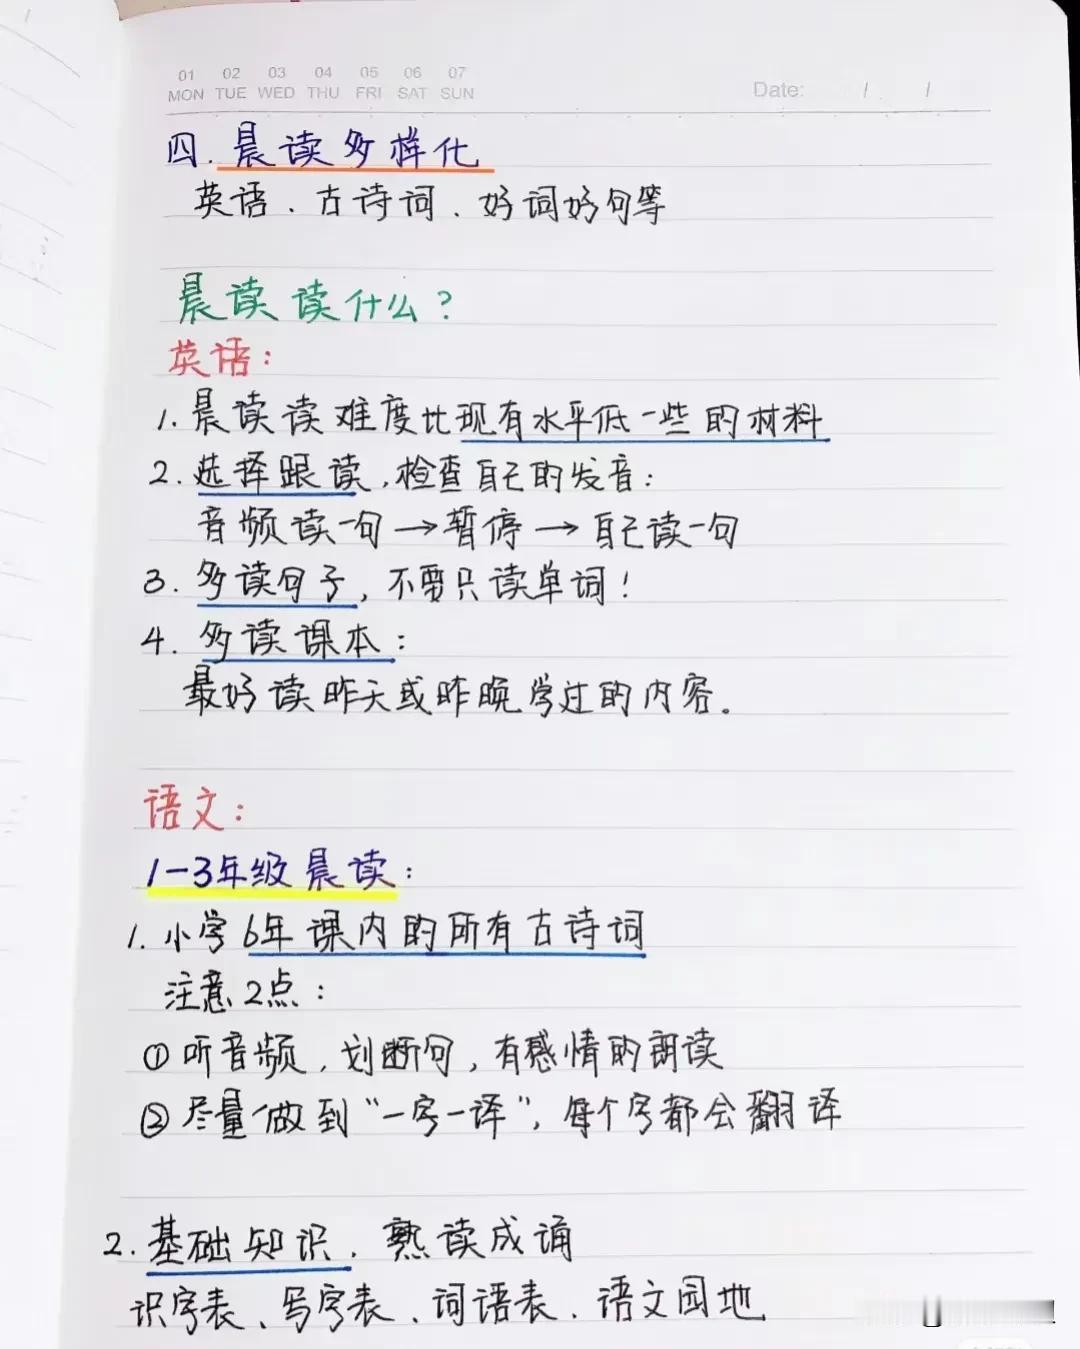 01 02 03 04 05 06 07
MON TUE WED THU FRI SAT SUN
Date: / /
四. 晨读多样化
英语、古诗词、好词好句等
晨读读什么?
英语:
1. 晨读读难度比现有水平低一些的材料
2. 选择跟读,检查自己的发音:
音频读一句→暂停→自己读一句
3. 多读句子,不要只读单词!
4. 多读课本:
最好读昨天或昨晚学过的内容。
语文:
1-3年级晨读:
1. 小学6年课内的所有古诗词
注意2点:
①听音频,划断句,有感情的朗读
②尽量做到“一字一译”,每个字都会翻译
2. 基础知识、熟读成诵
识字表、写字表、词语表、语文园地